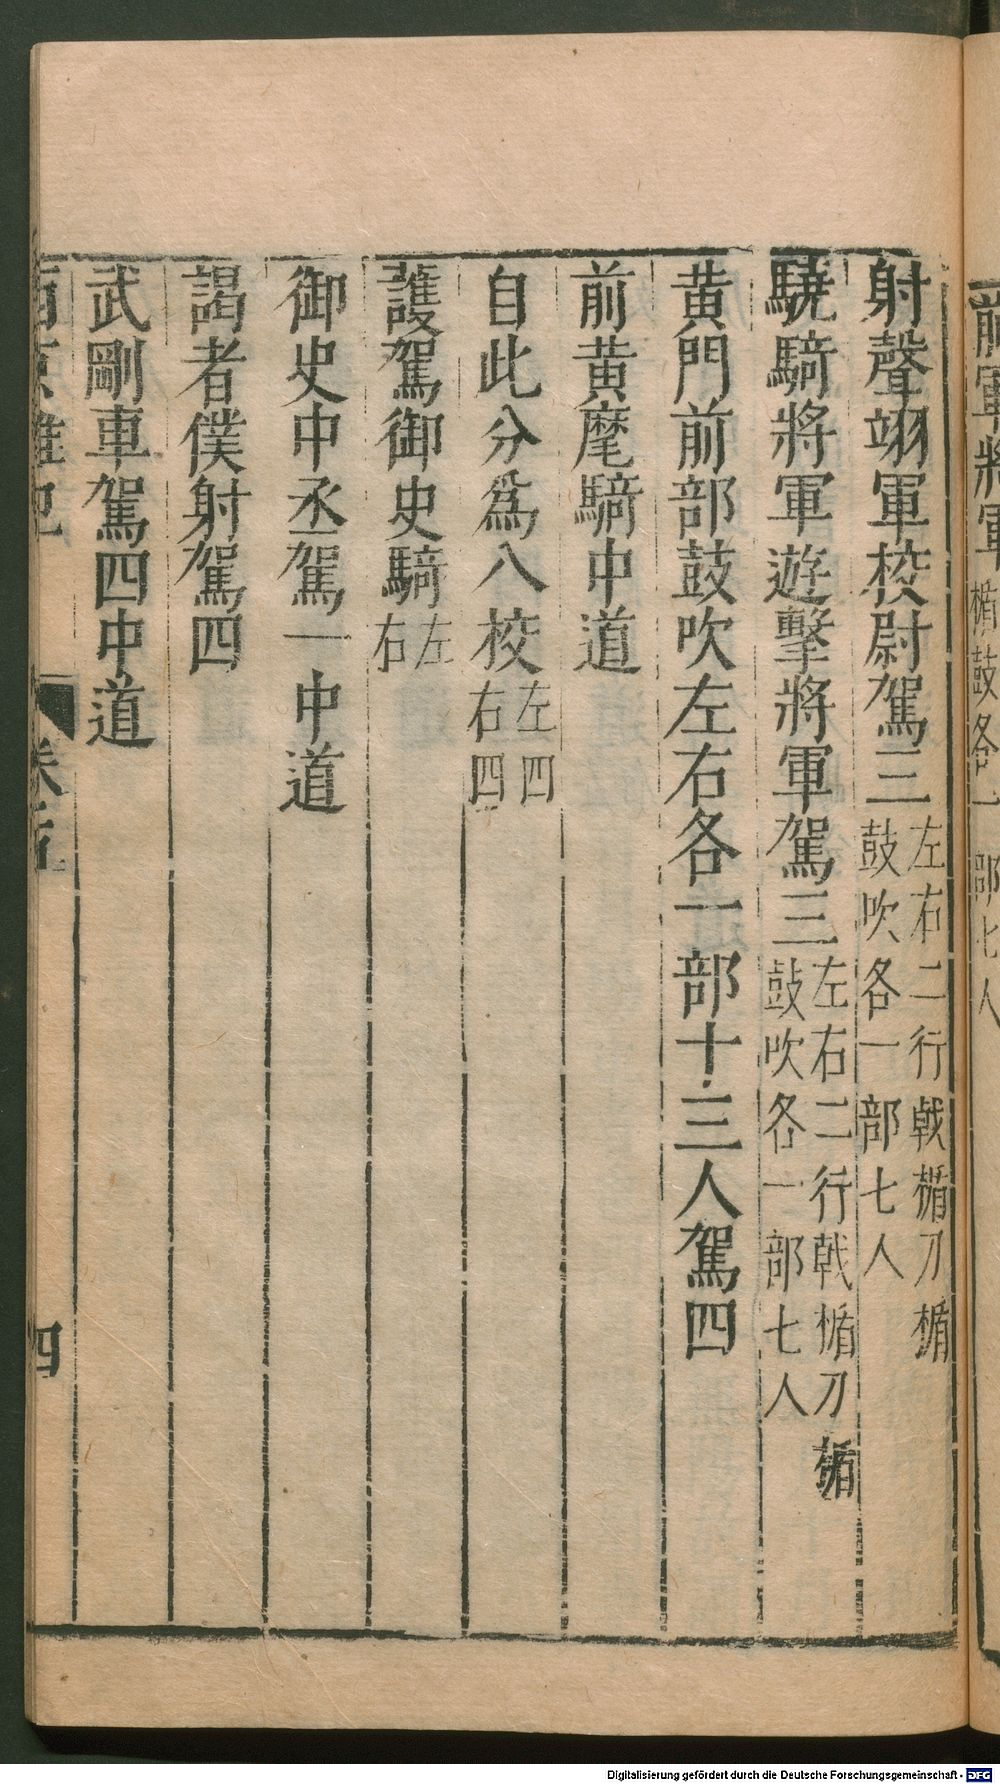 射聲翊軍校尉駕三左右二行戟楯刀楯鼓吹各一部七人
驍騎將軍遊擊將軍駕三左右二行戟楯刀楯鼓吹各一部七人
黄門前部鼓吹左右各一部十三人駕四
前黄麾騎中道
自此分爲八校左四右四
護駕御史騎左右
御史中丞駕一中道
謁者僕射駕四
武剛車駕四中道
西京雜記
卷五
四
前軍將軍楯鼓各一部七人
Digitalisierung gefördert durch die Deutsche Forschungsgemeinschaft - DFG